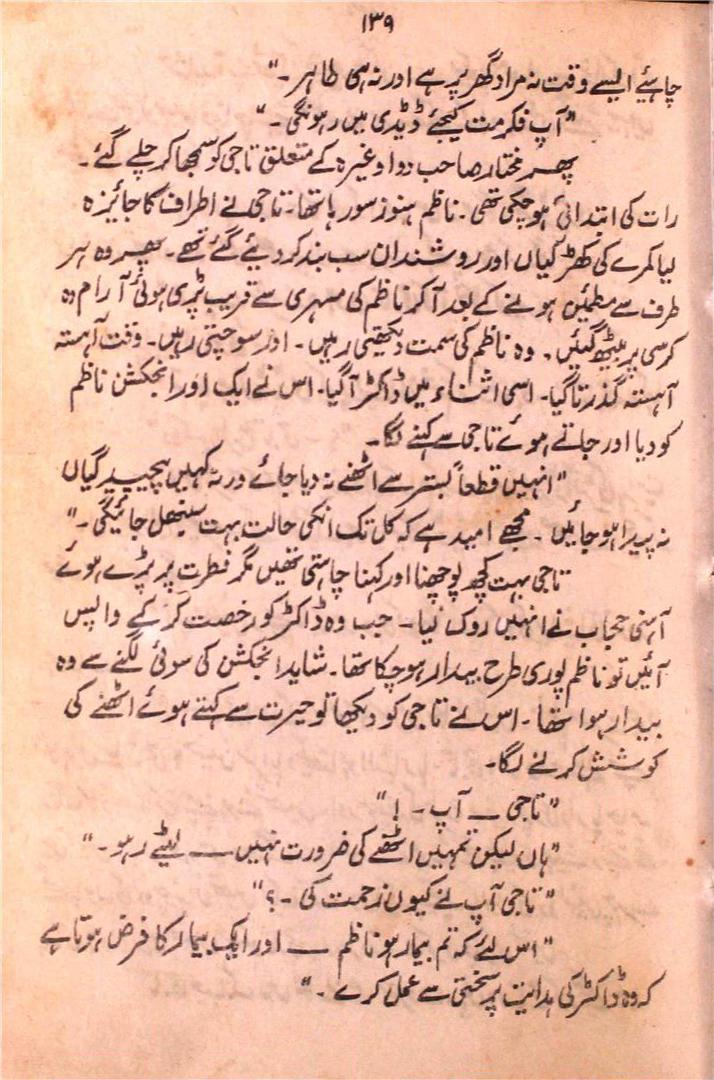 ۱۳۹
چاہیئے ایسے وقت نہ مراد گھر پر ہے اور نہ ہی طاہر ۔"
"آپ فکر مت کیجئے ڈیڈی میں رہونگی ۔"
پھر مختار صاحب دوا وغیرہ کے متعلق تاجی کو سمجھا کر چلے گئے ۔
رات کی ابتدائی ہو چکی تھی ۔ ناظم ہنوز سو رہا تھا ۔ تاجی نے اطراف کا جائیزہ
لیا کمرے کی کھڑکیاں اور روشندان سب بند کر دیئے گئے تھے ۔ پھر وہ ہر
طرف سے مطمئین ہونے کے بعد آکر ناظم کی مسہری سے قریب پڑی ہوئی آرام دہ
کرسی پر بیٹھ گئیں ۔ وہ ناظم کی سمت دیکھتی رہیں ۔ اور سوچتی رہیں ۔ وقت آہستہ
آہستہ گذرتا گیا ۔ اسی اثناء میں ڈاکٹر آگیا ۔ اس نے ایک اور انجکشن ناظم
کو دیا اور جاتے ہوئے تاجی سے کہنے لگا ۔
"انہیں قطعاً بستر سے اٹھنے نہ دیا جائے ورنہ کہیں پیچیدگیاں
نہ پیدا ہو جائیں ۔ مجھے امید ہے کہ کل تک انکی حالت بہت سنبھل جائیگی ۔"
تاجی بہت کچھ پوچھنا اور کہنا چاہتی تھیں مگر فطرت پر پڑے ہوئے
آہنی حجاب نے انہیں روک لیا ۔ جب وہ ڈاکٹر کو رخصت کر کے واپس
آئیں تو ناظم پوری طرح بیدار ہو چکا تھا ۔ شاید انجکشن کی سوئی لگنے سے وہ
بیدار ہوا تھا ۔ اس نے تاجی کو دیکھا تو حیرت سے کہتے ہوئے اٹھنے کی
کوشش کرنے لگا ۔
"تاجی — آپ ۔ !"
"ہاں لیکن تمہیں اٹھنے کی ضرورت نہیں — لیٹے رہو ۔"
"تاجی آپ نے کیوں زحمت کی ۔ ؟"
"اس لئے کہ تم بیمار ہو ناظم — اور ایک بیمار کا فرض ہوتا ہے
کہ وہ ڈاکٹر کی ہدایت پر سختی سے عمل کرے ۔"